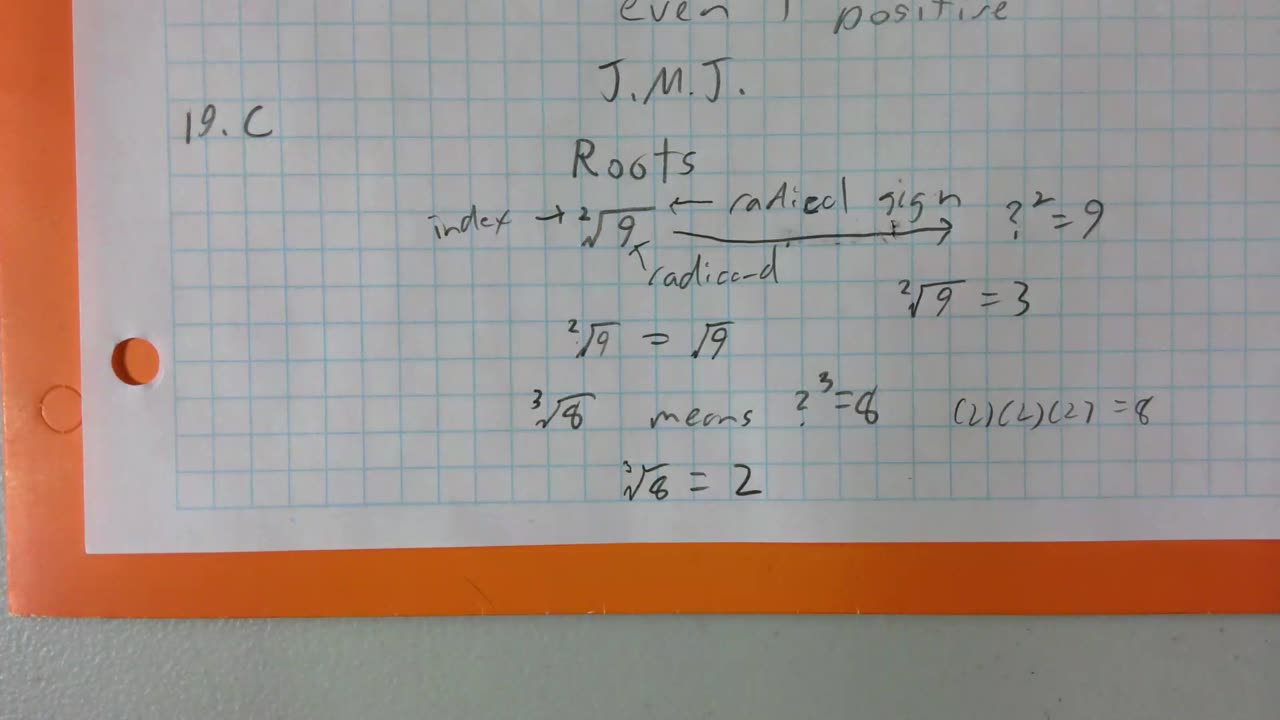 even positive
J.M.J.
19.C
Roots
index → ²√9 ← radical sign → ?² = 9
radicand
²√9 = 3
²√9 = √9
³√8 means ?³=8 (2)(2)(2) = 8
³√8 = 2